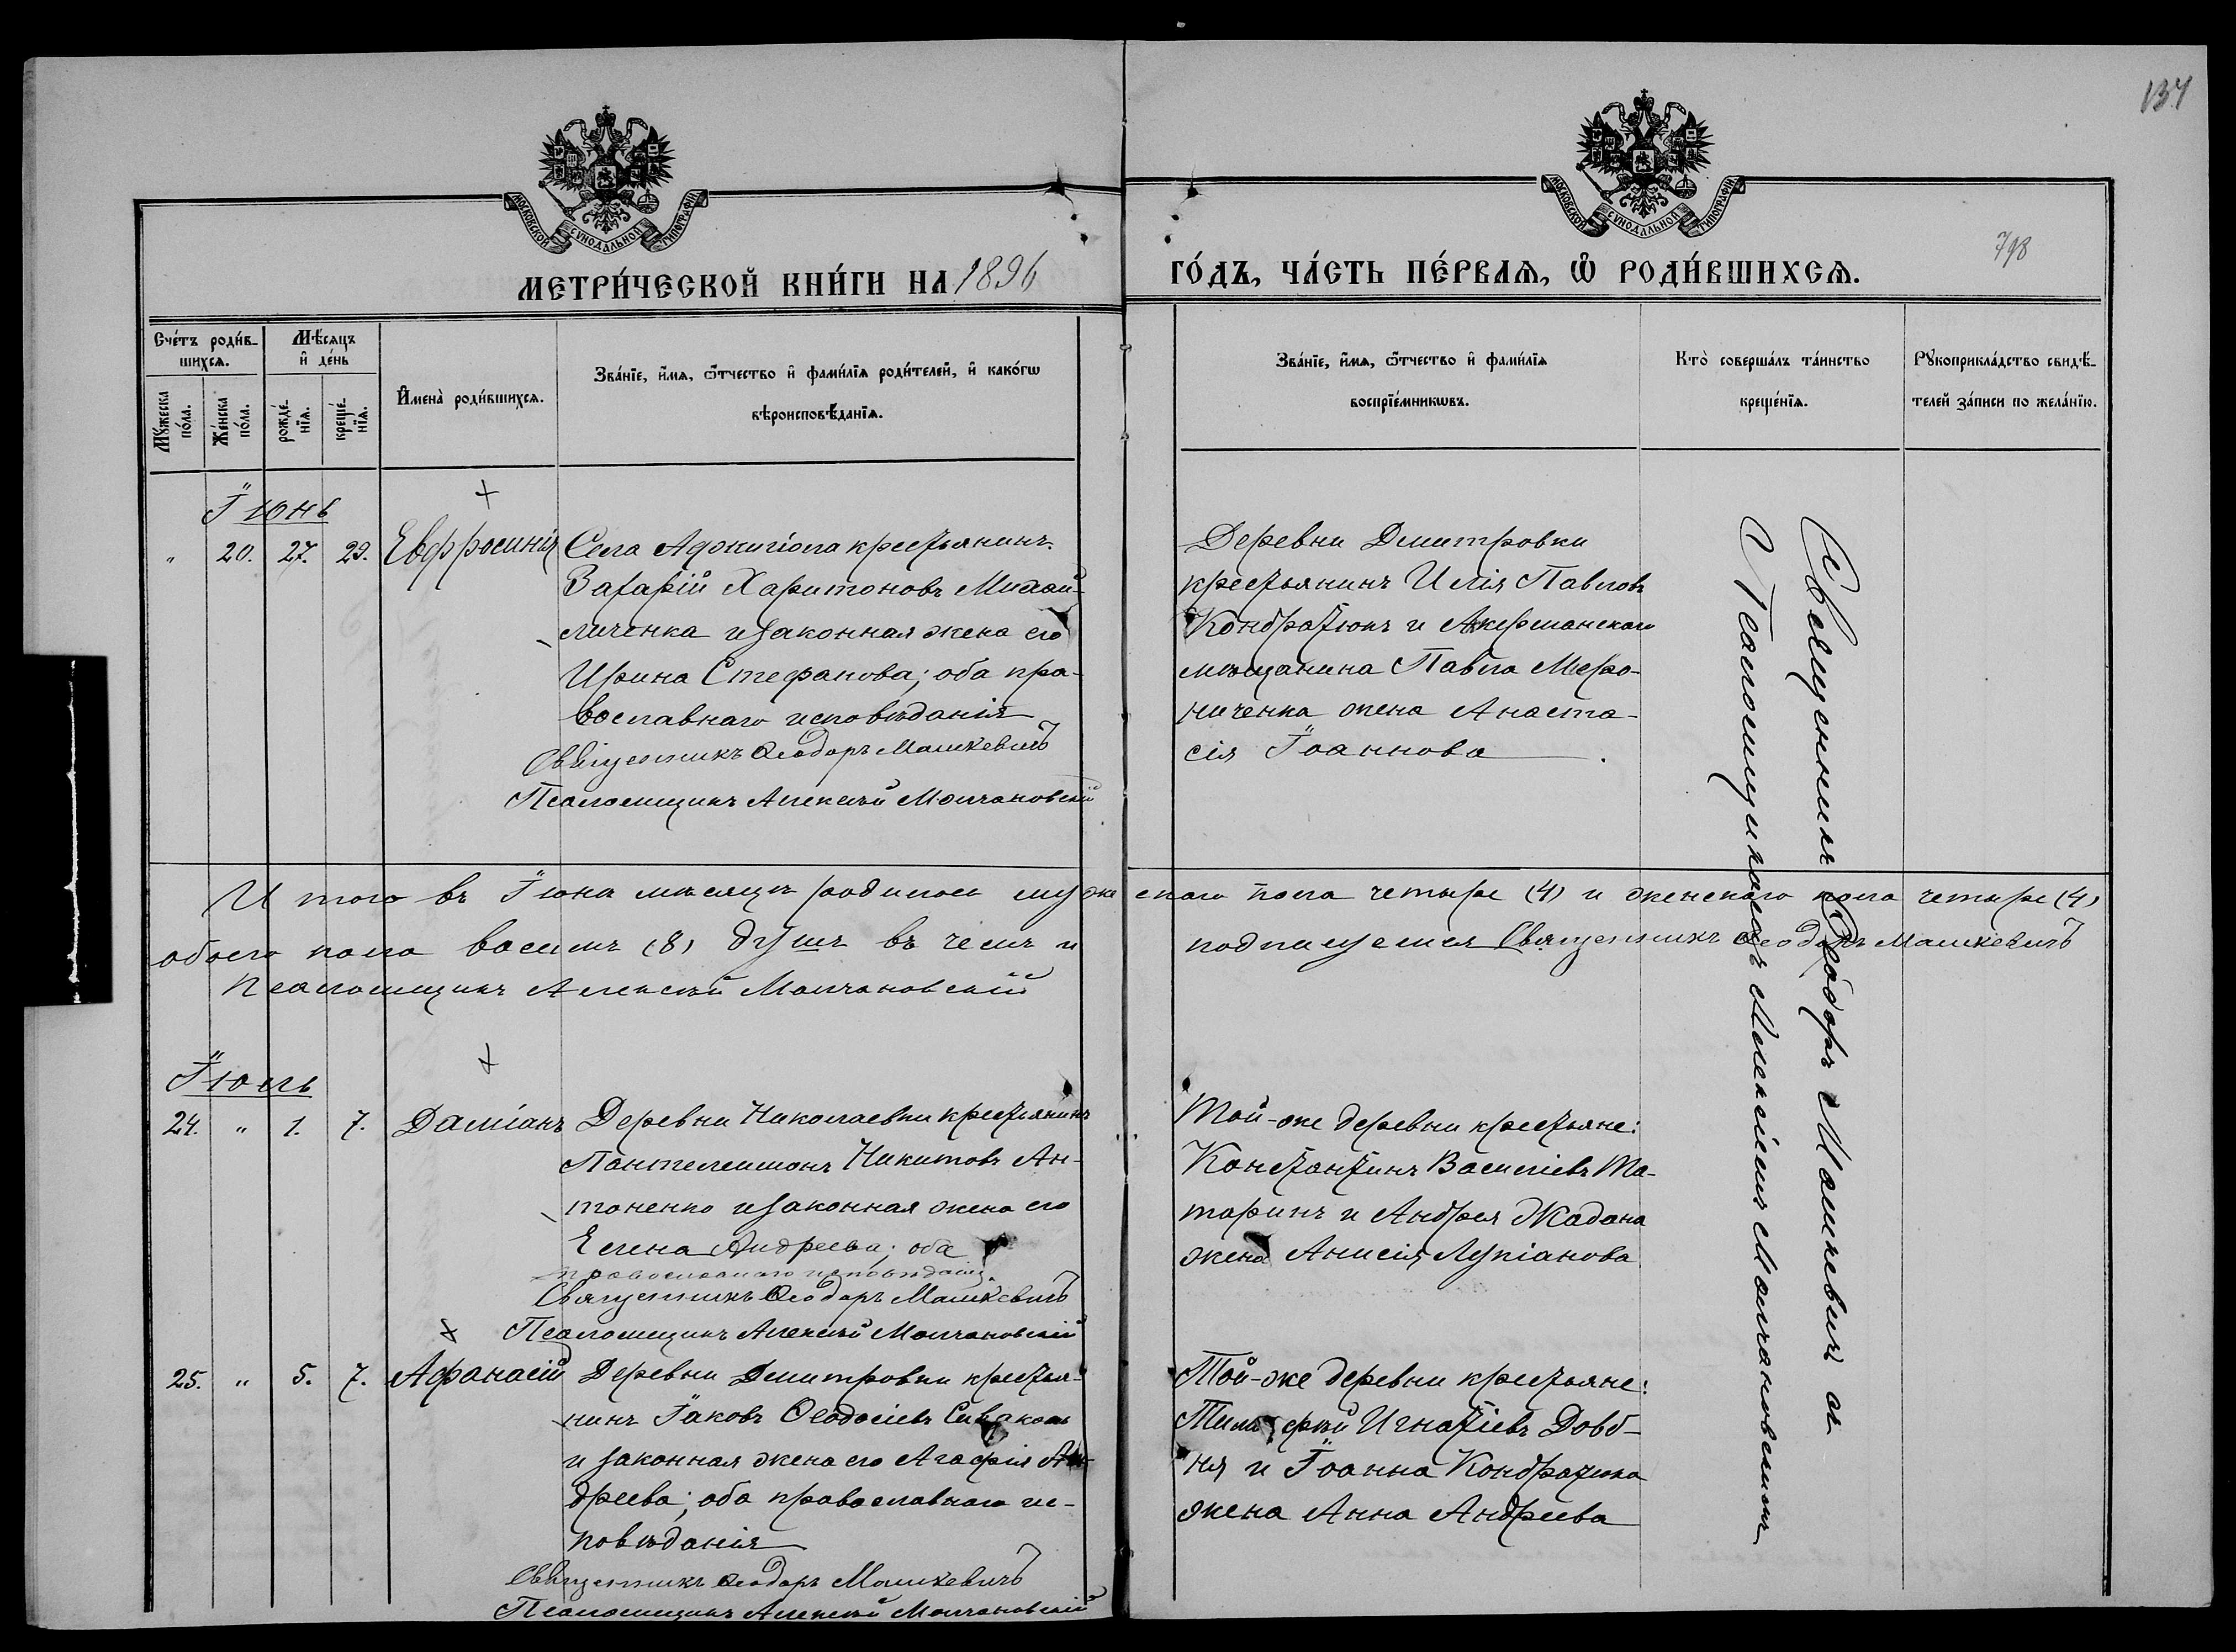 134
МОСКОВСКОЙ СУНОДАЛЬНОЙ ТИПОГРАФІИ
МОСКОВСКОЙ СУНОДАЛЬНОЙ ТИПОГРАФІИ
798
МЕТРИ́ЧЕСКОЙ КНИ́ГИ НА 1896
ГО́ДЪ, ЧА́СТЬ ПЕ́РВАѦ, Ѿ РОДИ́ВШИХСѦ.
Сче́тъ роди́в-
шихсѧ.
Мꙋ́жеска по́ла.
Же́нска по́ла.
Мѣ́сѧцъ
и҆ де́нь
рожде́-
нїѧ.
креще́-
нїѧ.
И҆мена̀ роди́вшихсѧ.
Зва́нїе, и҆́мѧ, ѻ҆́тчество и҆ фами́лїѧ роди́телей, и҆ како́гѡ
вѣроисповѣ́данїѧ.
Зва́нїе, и҆́мѧ, ѻ҆́тчество и҆ фами́лїѧ
воспрїе́мникѡвъ.
Кто̀ соверша́лъ та́инство
креще́нїѧ.
Рꙋкоприкла́дство свидѣ́-
телей за́писи по жела́нїю.
Іюнь
" 20. 27. 29. Евфросинія Села Аджигіола крестьянинъ
Захарій Харитоновъ Михай-
личенка и законная жена его
Ирина Стефанова; оба пра-
вославнаго исповѣданія
Священникъ Ѳеодоръ Машкевичъ
Псаломщикъ Алексѣй Молчановскій
Деревни Дмитровки
крестьянинъ Илія Павловъ
Кондратюкъ и Акерманскаго
мѣщанина Павла Миро-
ниченка жена Анаста-
сія Іоаннова
Священникъ Ѳеодоръ Машкевичъ съ
Псаломщикомъ Алексіемъ Молчановскимъ
Итого въ Іюнѣ мѣсяцѣ родилось мужескаго пола четыре (4) и женскаго пола четыре (4)
обоего пола восемь (8) душъ въ чемъ и подписуемся Священникъ Ѳеодоръ Машкевичъ
Псаломщикъ Алексѣй Молчановскій
Іюль
24. " 1. 7. Даміанъ Деревни Николаевки крестьянинъ
Пантелеимонъ Никитовъ Ан-
тоненко и законная жена его
Елена Андреева; оба
православнаго исповѣданія.
Священникъ Ѳеодоръ Машкевичъ
Псаломщикъ Алексѣй Молчановскій
Той-же деревни крестьяне:
Константинъ Василіевъ Та-
таринъ и Андрея Жадана
жена Анисія Лукіанова
25. " 5. 7. Афанасій Деревни Дмитровки крестья-
нинъ Іаковъ Ѳеодосіевъ
и законная жена его Агафія Ан-
дреева; оба православнаго ис-
повѣданія
Священникъ Ѳеодоръ Машкевичъ
Псаломщикъ Алексѣй Молчановскій
Той-же деревни крестьяне:
Тимофѣй Игнатіевъ Довб-
ня и Іоанна Кондратюка
жена Анна Андреева